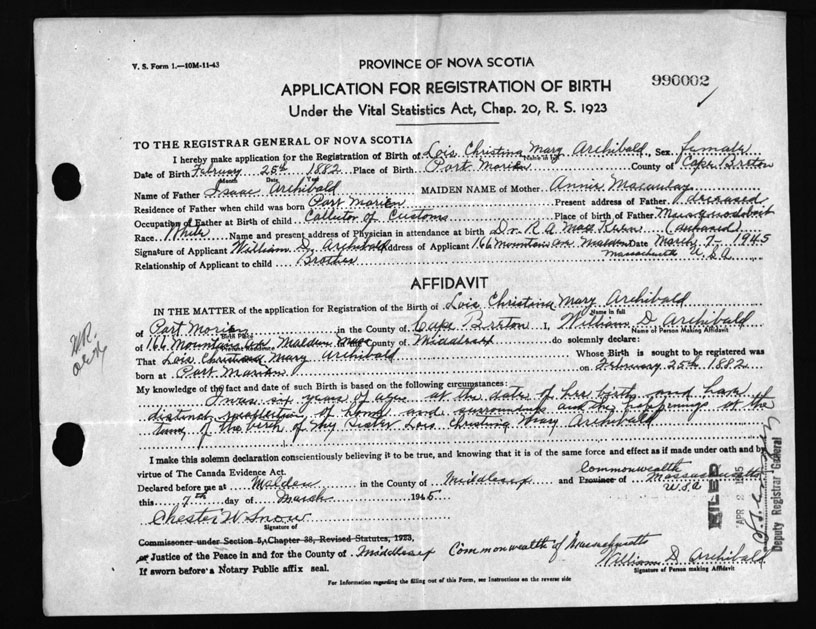 V. S. Form 1.—10M-11-43
PROVINCE OF NOVA SCOTIA
APPLICATION FOR REGISTRATION OF BIRTH
990002
Under the Vital Statistics Act, Chap. 20, R. S. 1923
TO THE REGISTRAR GENERAL OF NOVA SCOTIA
I hereby make application for the Registration of Birth of Lois Christina Mary Archibald, Sex female
Name in full
Date of Birth February 25th 1882 Place of Birth Port Morien County of Cape Breton
Month Date Year
Name of Father Isaac Archibald MAIDEN NAME of Mother Annie Macaulay
Residence of Father when child was born Port Morien Present address of Father deceased
Occupation of Father at Birth of child Collector of Customs Place of birth of Father Musquodoboit
Race White Name and present address of Physician in attendance at birth Dr. R A (deceased)
Signature of Applicant William D. Archibald Address of Applicant 166 Mountain Ave Malden Date March 7 - 1945
Massachusetts U.S.A
Relationship of Applicant to child Brother
AFFIDAVIT
IN THE MATTER of the application for Registration of the Birth of Lois Christina Mary Archibald
Name in full
of Port Morien in the County of Cape Breton I, William D Archibald
Name of Person Making Affidavit
of 166 Mountain Ave Malden Mass County of Middlesex do solemnly declare:
That Lois Christina Mary Archibald Whose Birth is sought to be registered was
born at Port Morien on February 25th 1882
My knowledge of the fact and date of such Birth is based on the following circumstances:
I was six years of age at the date of her birth and have
distinct recollection of home and surroundings and the happenings at the
time of the birth of my Sister Lois Christina Mary Archibald
I make this solemn declaration conscientiously believing it to be true, and knowing that it is of the same force and effect as if made under oath and by
virtue of The Canada Evidence Act.
Commonwealth
Declared before me at Malden in the County of Middlesex and Province of Massachusetts
U.S.A
this 7th day of March 1945
Chester W Snow
Signature of
Commissoner under Section 5, Chapter 38, Revised Statutes, 1923,
or Justice of the Peace in and for the County of Middlesex Commonwealth of Massachusetts
William D Archibald
If sworn before a Notary Public affix seal.
Signature of Person making Affidavit
For Information regarding the filling out of this Form, see Instructions on the reverse side
FILED
APR 2 1945
Deputy Registrar General